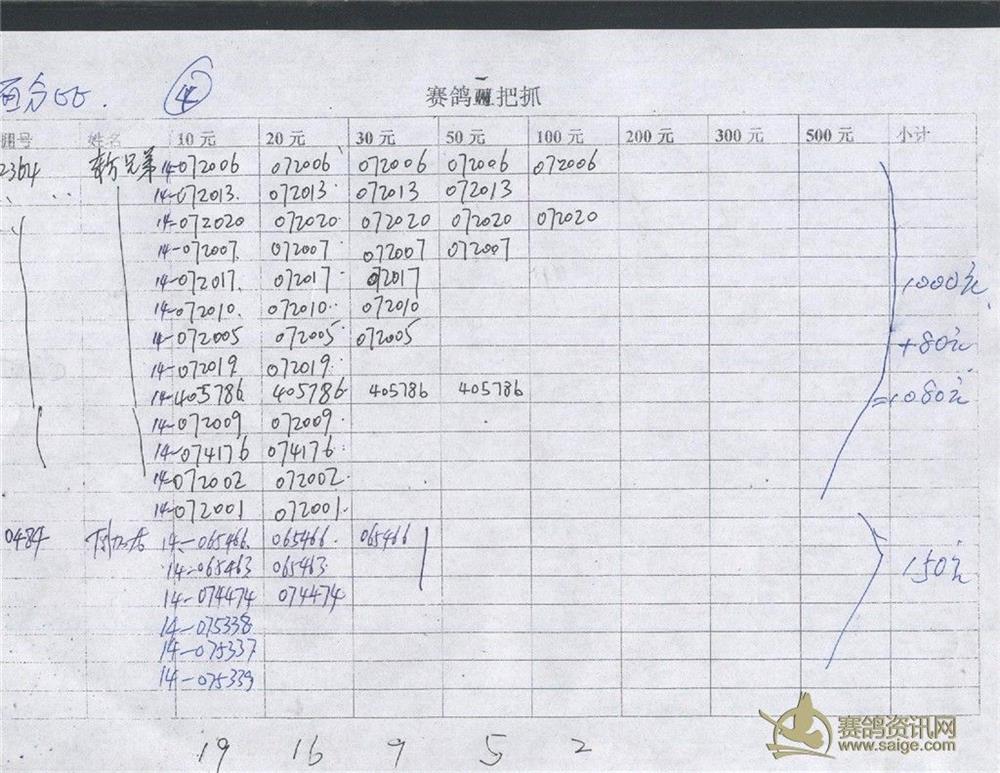 百分55. ④
赛鸽 一把抓
棚号 姓名 10 元 20 元 30 元 50 元 100 元 200 元 300 元 500 元 小计
2364 兄弟 14-072006 072006 072006 072006 072006
14-072013 072013 072013 072013
14-072020 072020 072020 072020 072020
14-072007 072007 072007 072007
14-072017 072017 072017
1000元
14-072010 072010 072010
14-072005 072005 072005
+80元
14-072019 072019
14-405786 405786 405786 405786
=1080元
14-072009 072009
14-074176 074176
14-072002 072002
14-072001 072001
0484 14-065466 065466 065466
14-065463 065463
150元
14-074474 074474
14-075338
14-075337
14-075339
19 16 9 5 2
赛鸽资讯网
www.saige.com